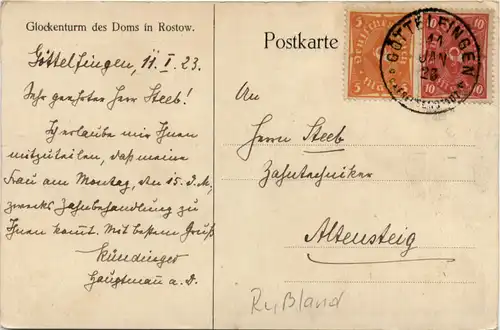 Glockenturm des Doms in Rostow.
Göttelfingen, 11. I. 23.
Sehr geehrter Herr Steeb!
Ich erlaube mir Ihnen
mitzuteilen, daß meine
Frau am Montag, den 15. d. M.,
zwecks Zahnbehandlung zu
Ihnen kommt. Mit bestem Gruß
Kündinger
Hauptmann a. D.
Postkarte
An
Herrn Steeb
Zahntechniker
Altensteig
Rußland
5 5
10 10
GÖTTELFINGEN
11
JAN
23